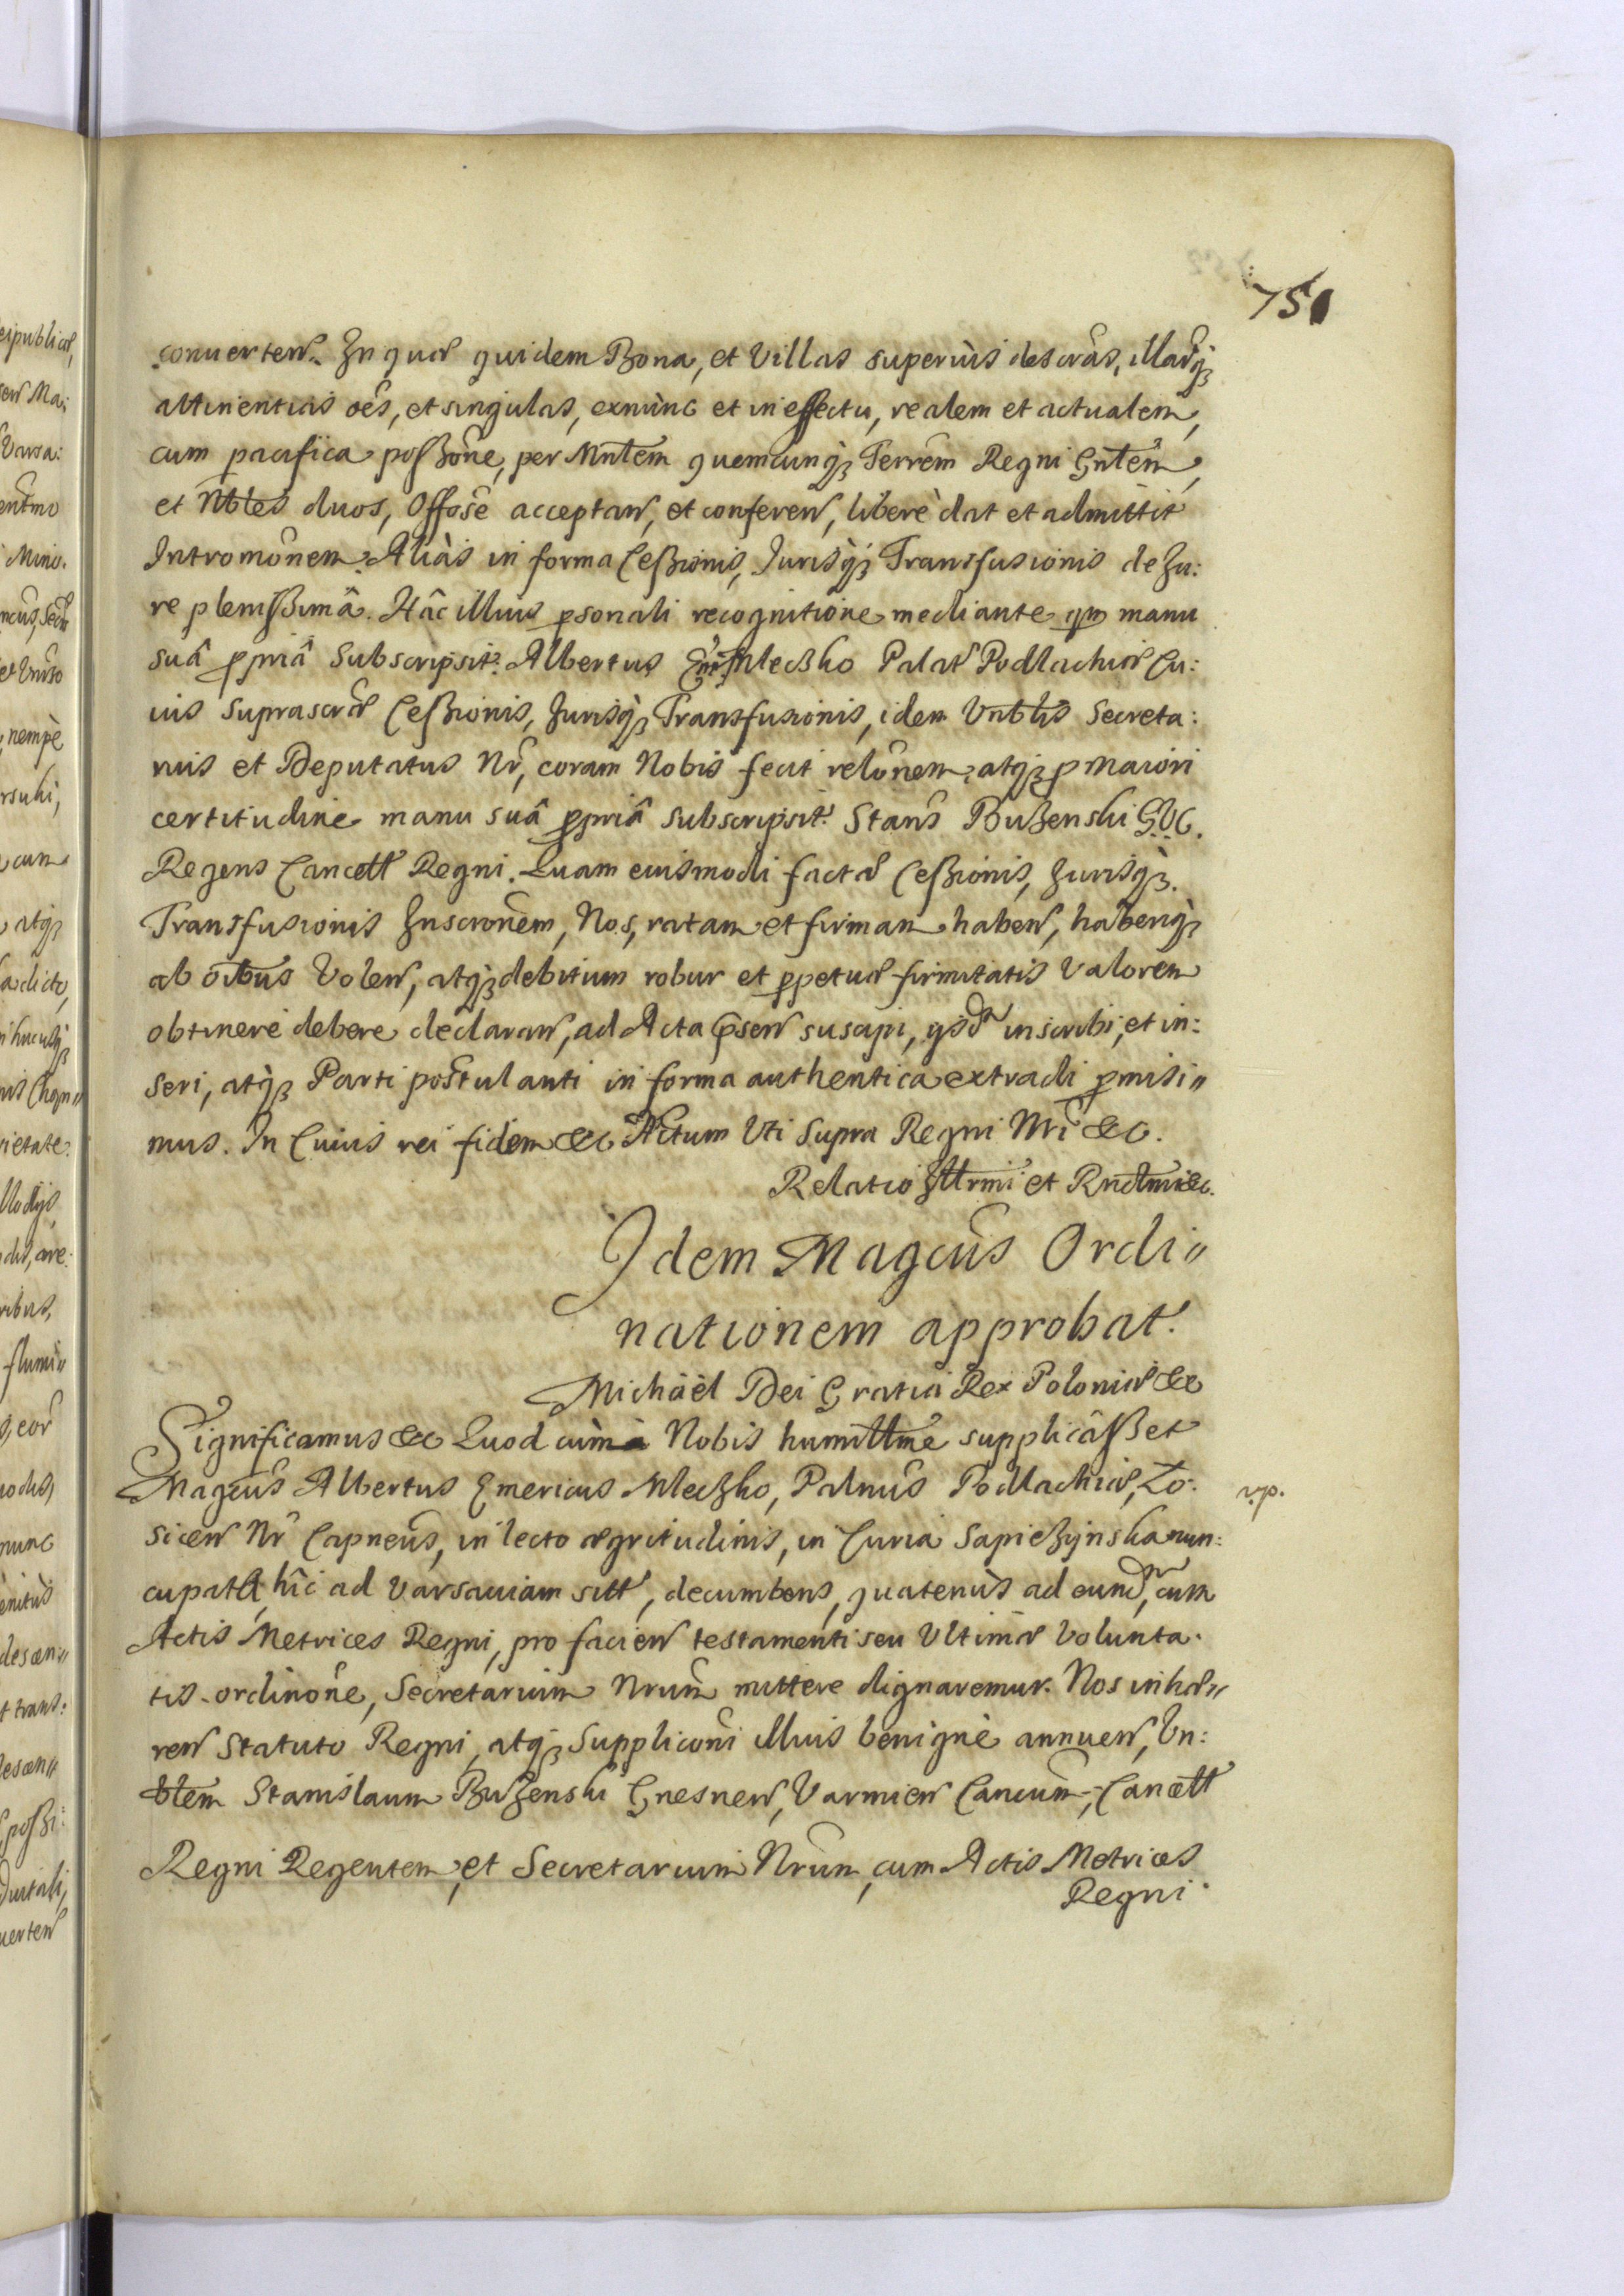 751
conuerten. In quæ quidem Bona, et Villas superiùs descrās, illarq́
attinentias oēs, et singulas, exnùnc et in effectu, realem et actualem,
cum pacifica posßōne, per Mntēm quemcunq́ Terrēm Regni Gntēm,
et Nbles duos, Offōse acceptan, et conferen, liberè dat et admittit
Intromōnem. Aliàs in forma Ceßionis, Jurisq́ Transfusionis de Ju:
re plenißimâ. Hâc illius psonali recognitione mediante qm manu
suâ ppriâ subscripsit. Albertus Mleczko Palat Podlachiæ Cu:
ius suprascræ Ceßionis, Jurisq́ Transfusionis, idem Vrblis Secreta:
rius et Deputatus Nr, coram Nobis fecit relōnem, atq́ p maiori
certitudine manu suâ ppriâ subscripsit. Stans Bużenski G.V.C.
Regens Cancell Regni. Quam eiusmodi factæ Ceßionis, Jurisq́
Transfusionis Inscrōnem, Nos, ratam et firmam haben, haberiq́
ab oibus Volen, atq́ debitum robur et ppetuæ firmitatis Valorem
obtinere debere declaran, ad Acta psen suscipi, ijsd inscribi, et in:
seri, atq́ Parti postulanti in forma authentica extradi pmisi〃
mus. In Cuius rei fidem &c Actum Vti Supra Regni Nri &c.
Relatio Illrmi et Rndmi &c.
Idem Magcus Ordi〃
nationem approbat.
Michäèl Dei Gratia Rex Poloniæ &c
Significamus &c Quod cùm à Nobis humillme supplicâßet
Magcus Albertus Emericus Mleczko, Palnus Podlachiæ, Ło:
v.p.
sicen Nr Capneus, in lecto ægritudinis, in Curia Sapieżijnska nun:
cupata, hîc ad Varsauiam sitt, decumbens, quatenùs ad eund, cum
Actis Metrices Regni, pro facien testamenti seu Vltimæ Volunta:
tis ordinōne, Secretarium Nrum mittere dignaremur. Nos inhæ〃
ren Statuto Regni, atq́ Supplicōni illius benignè annuen, Vn:
blem Stanislaum Bużenski Gnesnen, Varmien Cancum, Cancell
Regni Regentem, et Secretarium Nrum, cum Actis Metrices
Regni